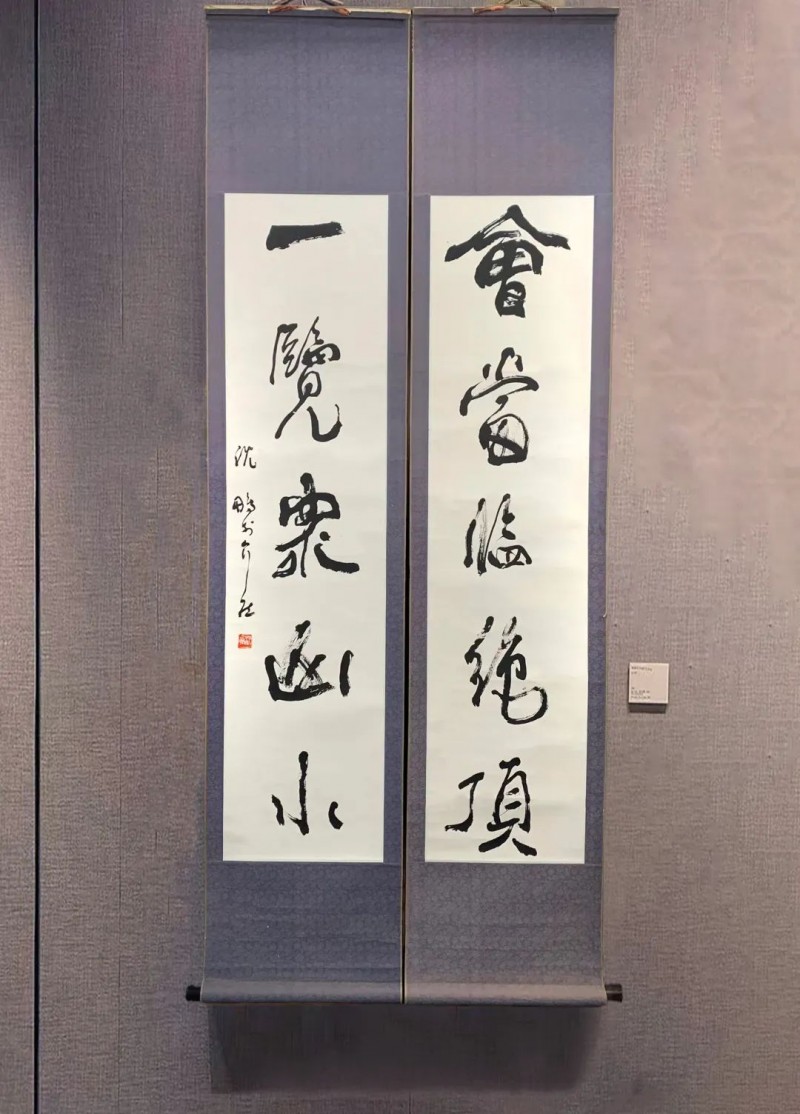 會當臨絕頂
一覽衆山小
沈鵬於介居